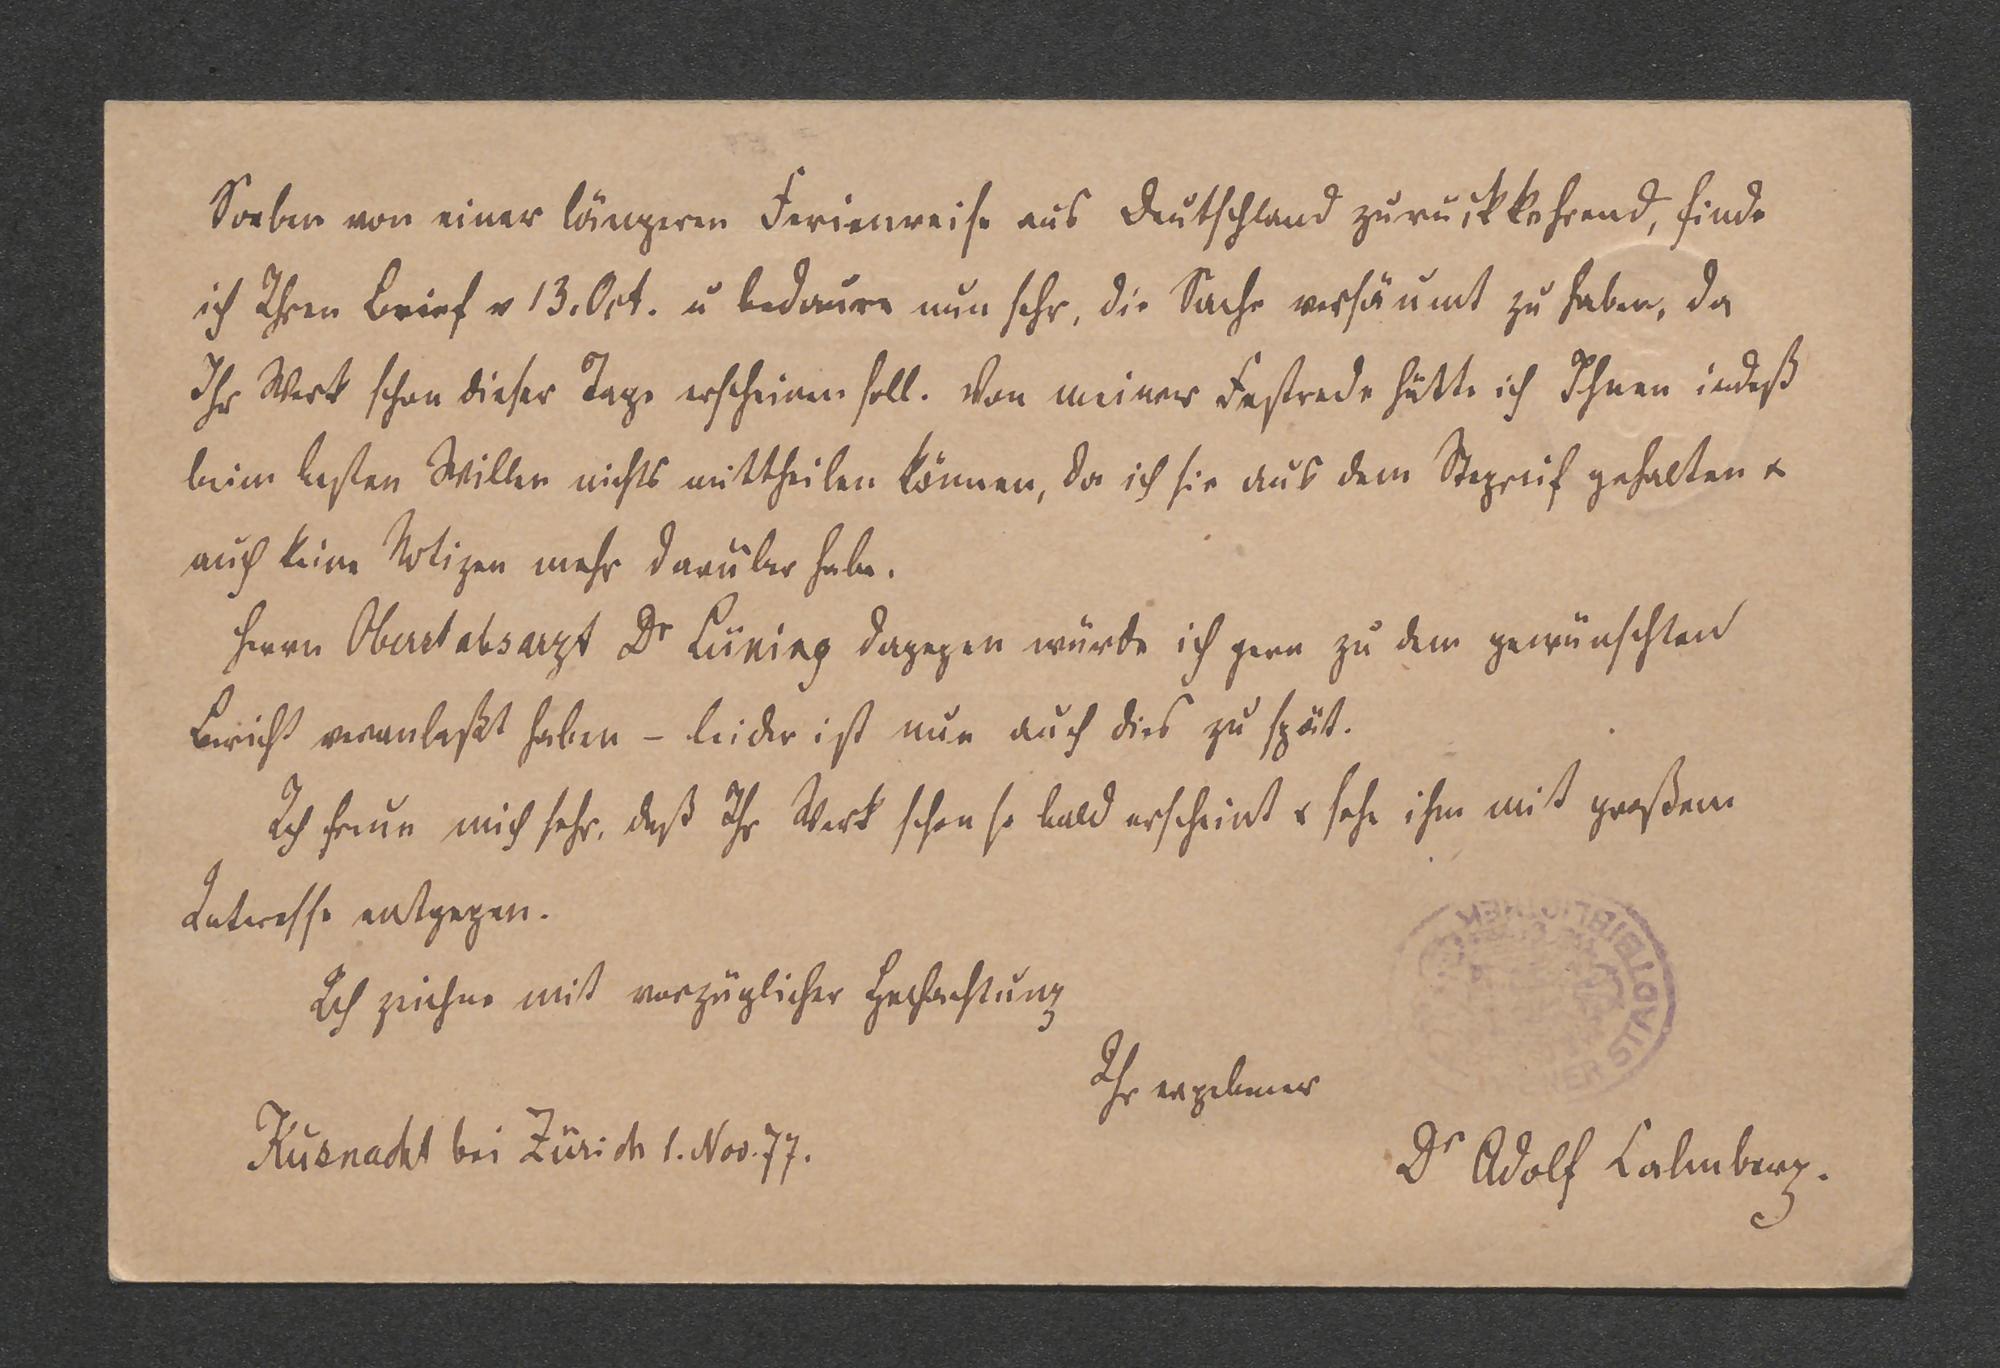 Soeben von einer längeren Ferienreise aus Deutschland zurückkehrend, finde
ich Ihren Brief v 13. Oct. u bedaure nun sehr, die Sache versäumt zu haben, da
Ihr Werk schon dieser Tage erscheinen soll. Von meiner Festrede hätte ich Ihnen indeß
beim besten Willen nichts mittheilen können, da ich sie aus dem Stegreif gehalten &
auch keine Notizen mehr darüber habe.
Herrn Oberstabsarzt Dr Lüning dagegen würde ich gern zu dem gewünschten
Bericht veranlaßt haben – leider ist nun auch dies zu spät.
Ich freue mich sehr, daß Ihr Werk schon so bald erscheint & sehe ihm mit großem
Interesse entgegen.
Ich zeichne mit vorzüglicher Hochachtung
Ihr ergebener
Küsnacht bei Zürich 1. Nov. 77.
Dr Adolf Calmberg.